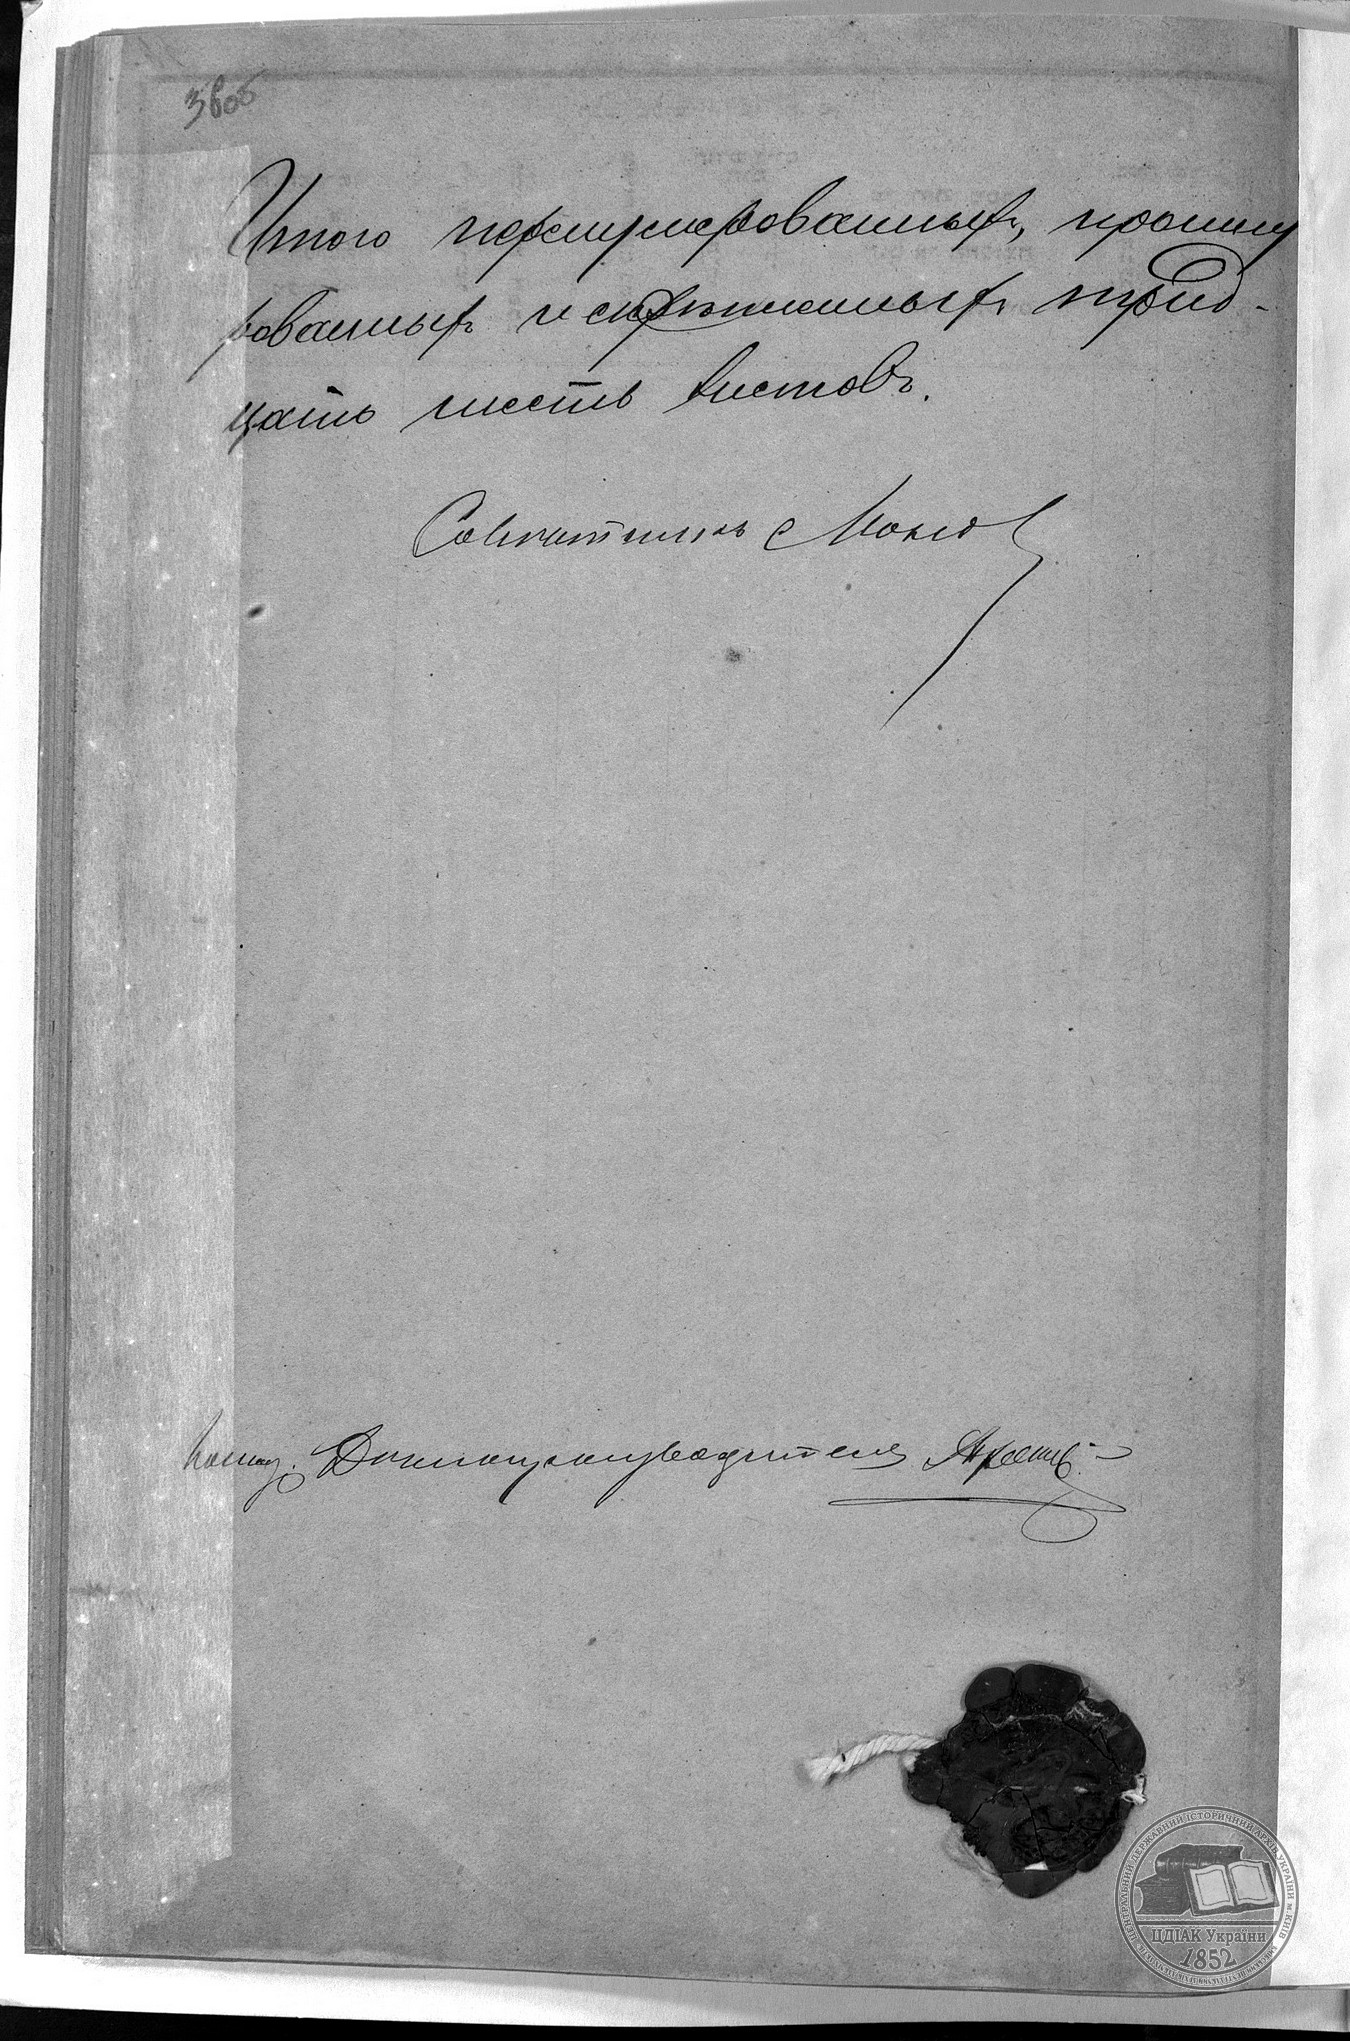 36об
Итого перенумерованныхъ, прошну
рованныхъ и скрѣпленныхъ трид-
цать шесть листовъ.
Совѣтникъ
Помощ. Дѣлопроизводителя
ЦЕНТРАЛЬНИЙ ДЕРЖАВНИЙ ІСТОРИЧНИЙ АРХІВ УКРАЇНИ м. КИЇВ
ЦДІАК України
1852